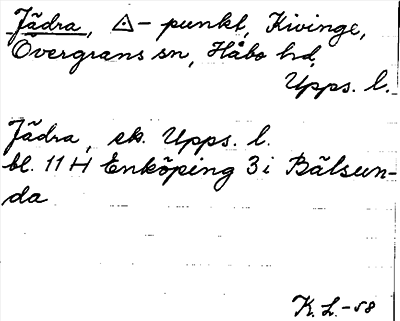 Jädra, △-punkt, Kivinge,
Övergrans sn, Håbo hd,
Upps. l.
Jädra, ek. Upps. l.
bl. 11 H Enköping 3 i Bälsun-
da
K. L. -58